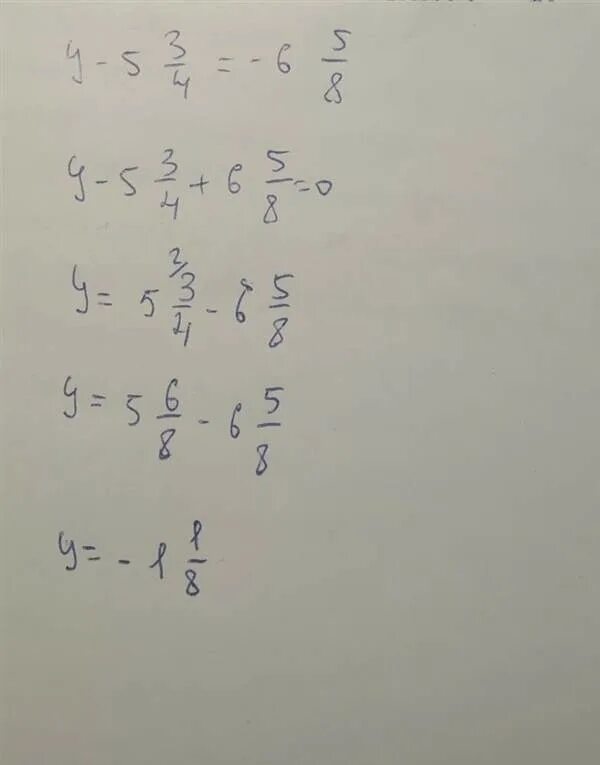 y - 5 3/4 = - 6 5/8
y - 5 3/4 + 6 5/8 = 0
y = 5 3/4 - 6 5/8
y = 5 6/8 - 6 5/8
y = - 1 1/8